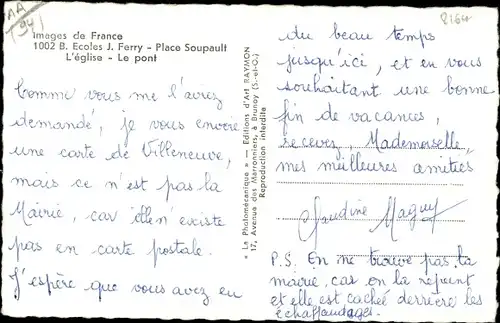 AA
(94)
8164
Images de France
1002 B. Ecoles J. Ferry - Place Soupault
L'église - Le pont
Comme vous me l'avez
demandé, je vous envoie
une carte de Villeneuve,
mais ce n'est pas la
Mairie, car elle n'existe
pas en carte postale.
J'espère que vous avez eu
« La Photomécanique » — Editions d'Art RAYMON
17, Avenue des Marronniers, à Brunoy (S.-et-O.)
Reproduction interdite
du beau temps
jusqu'ici, et en vous
souhaitant une bonne
fin de vacances,
recevez, Mademoiselle,
mes meilleures amitiés
Claudine
P.S. On ne trouve pas la
mairie, car on la repeint
et elle est cachée derrière les
échaffaudages.